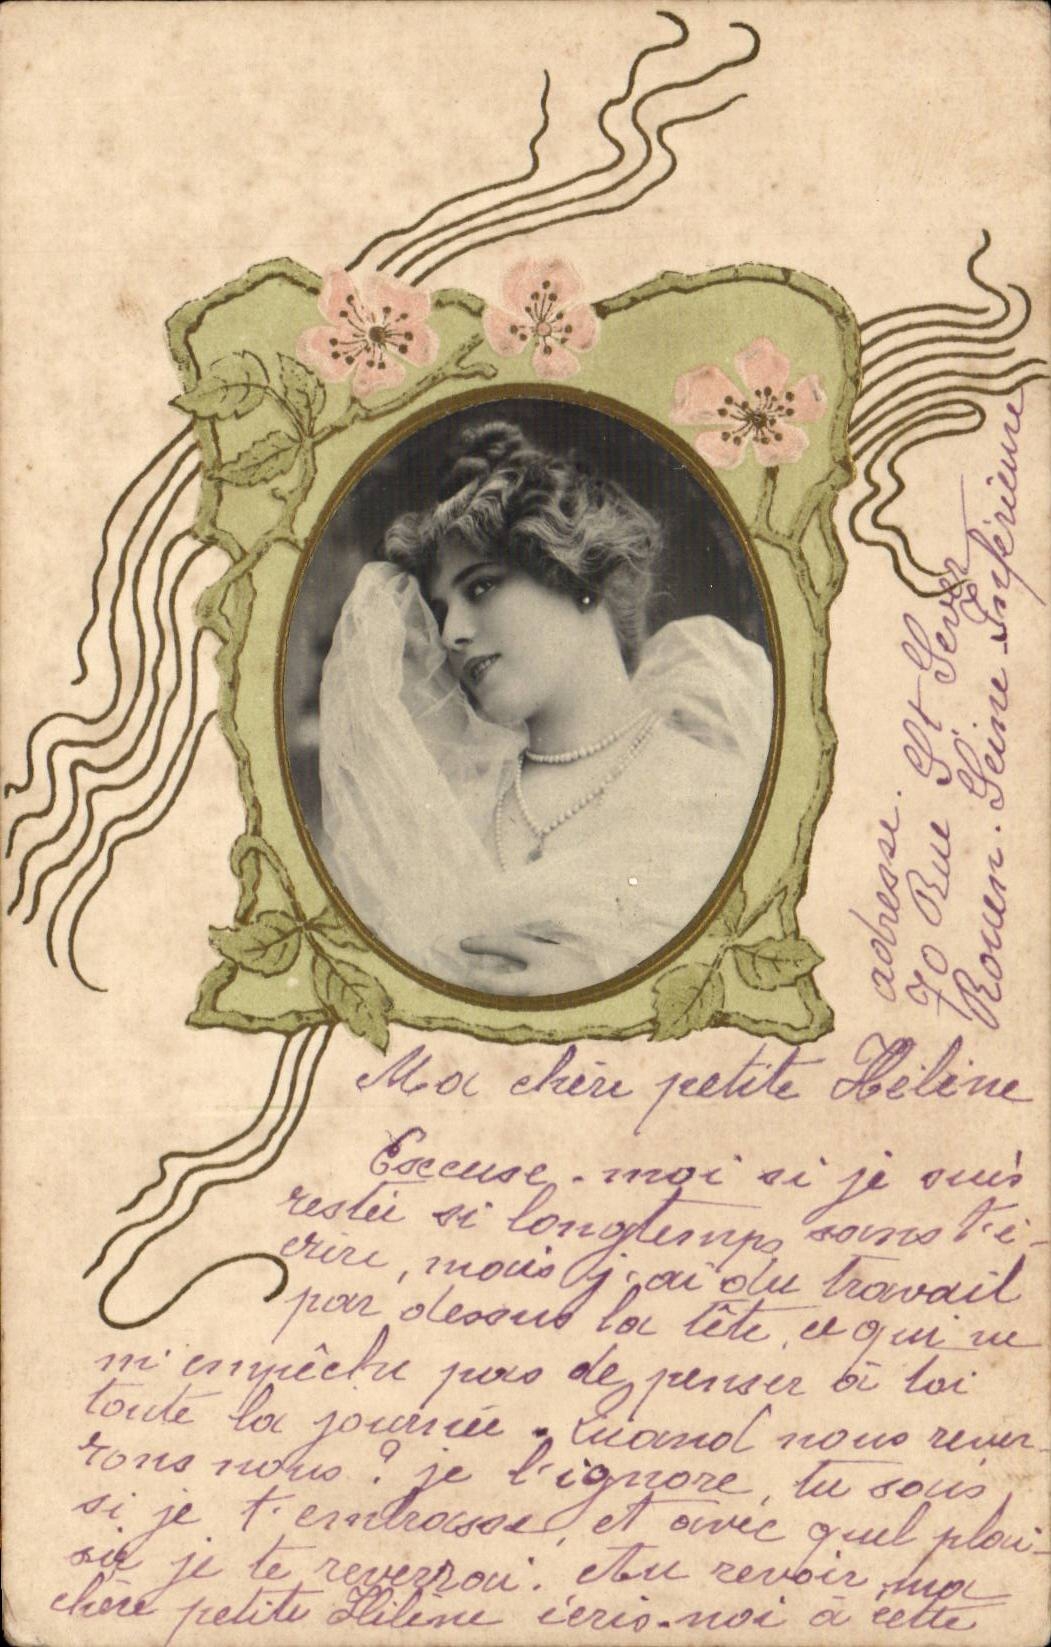 Ma chère petite Hélène
Excuse-moi si je suis
restée si longtemps sans t'é-
crire, mais j'ai du travail
par dessus la tête, ce qui ne
m'empêche pas de penser à toi
toute la journée. Quand nous rever-
rons nous ? je l'ignore, tu sais
si je t'embrasse, et avec quel plai-
sir je te reverrai. Au revoir ma
chère petite Hélène écris-moi à cette
adresse.
70 Rue St Sever
Rouen. Seine Inférieure